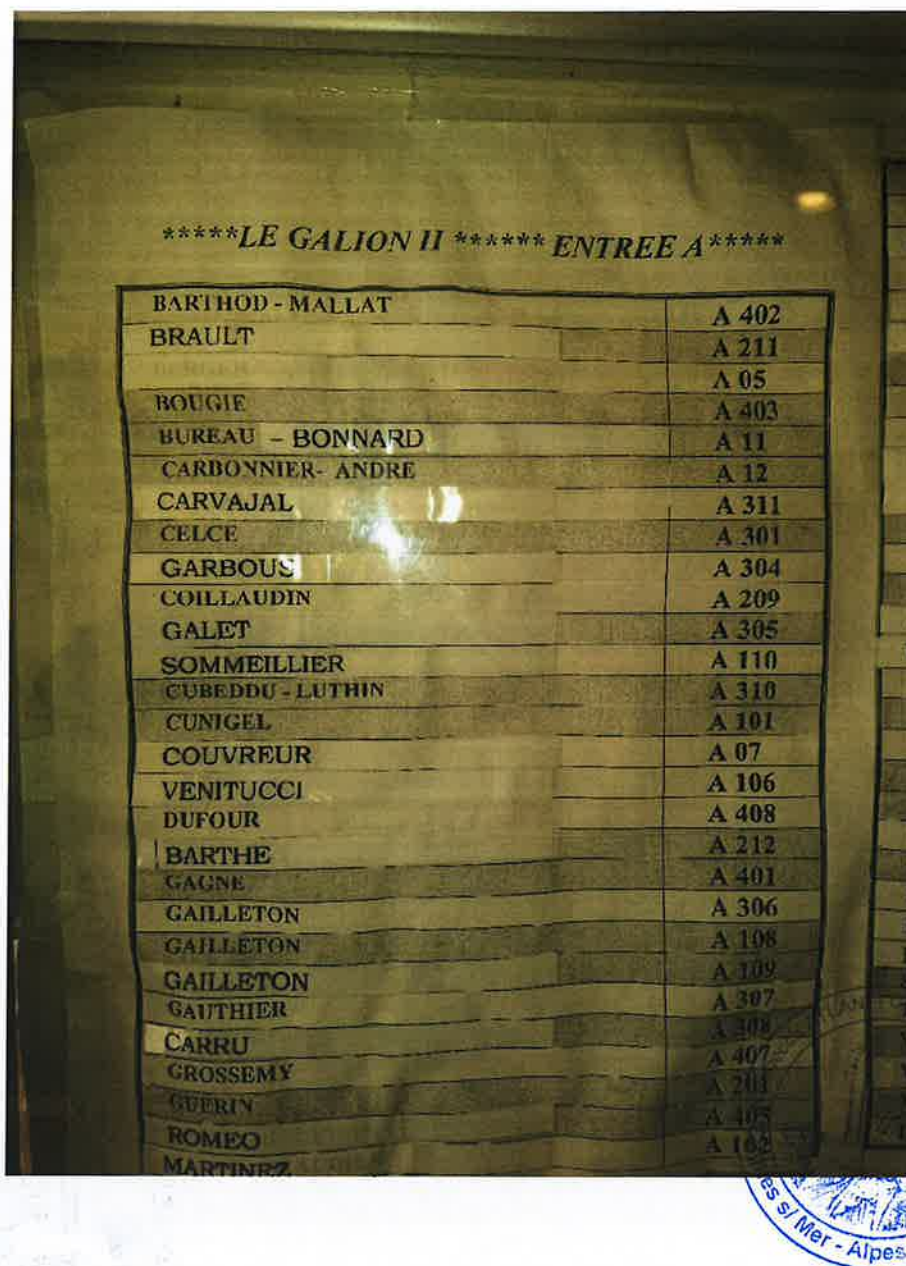 *****LE GALION II ****** ENTREE A*****
BARTHOD - MALLAT A 402
BRAULT A 211
A 05
BOUGIE A 403
BUREAU – BONNARD A 11
CARBONNIER- ANDRE A 12
CARVAJAL A 311
CELCE A 301
GARBOUS A 304
COILLAUDIN A 209
GALET A 305
SOMMEILLIER A 110
CUBEDDU - LUTHIN A 310
CUNIGEL A 101
COUVREUR A 07
VENITUCCI A 106
DUFOUR A 408
BARTHE A 212
GAGNE A 401
GAILLETON A 306
GAILLETON A 108
GAILLETON A 109
GAUTHIER A 307
CARRU A 308
GROSSEMY A 407
GUERIN A 201
ROMEO A 405
MARTINEZ A 102
es s/ Mer - Alpes